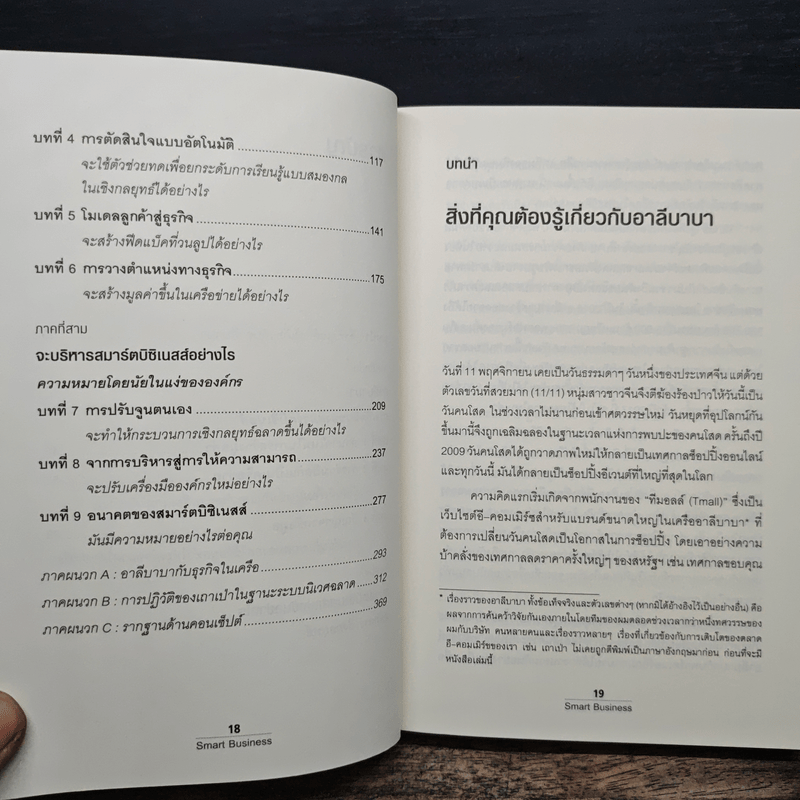 บทที่ 4 การตัดสินใจแบบอัตโนมัติ 117
จะใช้ตัวช่วยทดเพื่อยกระดับการเรียนรู้แบบสมองกล
ในเชิงกลยุทธ์ได้อย่างไร
บทที่ 5 โมเดลลูกค้าสู่ธุรกิจ 141
จะสร้างฟีดแบ็คที่วนลูปได้อย่างไร
บทที่ 6 การวางตำแหน่งทางธุรกิจ 175
จะสร้างมูลค่าขึ้นในเครือข่ายได้อย่างไร
ภาคที่สาม
จะบริหารสมาร์ตบิซิเนสส์อย่างไร
ความหมายโดยนัยในแง่ขององค์กร
บทที่ 7 การปรับจูนตนเอง 209
จะทำให้กระบวนการเชิงกลยุทธ์ฉลาดขึ้นได้อย่างไร
บทที่ 8 จากการบริหารสู่การให้ความสามารถ 237
จะปรับเครื่องมือองค์กรใหม่อย่างไร
บทที่ 9 อนาคตของสมาร์ตบิซิเนสส์ 277
มันมีความหมายอย่างไรต่อคุณ
ภาคผนวก A : อาลีบาบากับธุรกิจในเครือ 293
ภาคผนวก B : การปฏิวัติของเถาเป่าในฐานะระบบนิเวศฉลาด 312
ภาคผนวก C : รากฐานด้านคอนเซ็ปต์ 369
18
Smart Business
บทนำ
สิ่งที่คุณต้องรู้เกี่ยวกับอาลีบาบา
วันที่ 11 พฤศจิกายน เคยเป็นวันธรรมดาๆ วันหนึ่งของประเทศจีน แต่ด้วย
ตัวเลขวันที่สวยมาก (11/11) หนุ่มสาวชาวจีนจึงตีฆ้องร้องป่าวให้วันนี้เป็น
วันคนโสด ในช่วงเวลาไม่นานก่อนเข้าศตวรรษใหม่ วันหยุดที่อุปโลกน์กัน
ขึ้นมานี้จึงถูกเฉลิมฉลองในฐานะเวลาแห่งการพบปะของคนโสด ครั้นถึงปี
2009 วันคนโสดได้ถูกวาดภาพใหม่ให้กลายเป็นเทศกาลช็อปปิ้งออนไลน์
และทุกวันนี้ มันได้กลายเป็นช็อปปิ้งอีเวนต์ที่ใหญ่ที่สุดในโลก
ความคิดแรกเริ่มเกิดจากพนักงานของ "ทีมอลล์ (Tmall)" ซึ่งเป็น
เว็บไซต์อี-คอมเมิร์ซสำหรับแบรนด์ขนาดใหญ่ในเครืออาลีบาบา* ที่
ต้องการเปลี่ยนวันคนโสดเป็นโอกาสในการช็อปปิ้ง โดยเอาอย่างความ
บ้าคลั่งของเทศกาลลดราคาครั้งใหญ่ๆ ของสหรัฐฯ เช่น เทศกาลขอบคุณ
* เรื่องราวของอาลีบาบา ทั้งข้อเท็จจริงและตัวเลขต่างๆ (หากมิได้อ้างอิงไว้เป็นอย่างอื่น) คือ
ผลจากการค้นคว้าวิจัยกันเองภายในโดยทีมของผมตลอดช่วงเวลากว่าหนึ่งทศวรรษของ
ผมกับบริษัท คนหลายคนและเรื่องราวหลายๆ เรื่องที่เกี่ยวข้องกับการเติบโตของตลาด
อี-คอมเมิร์ซของเรา เช่น เถาเป่า ไม่เคยถูกตีพิมพ์เป็นภาษาอังกฤษมาก่อน ก่อนที่จะมี
หนังสือเล่มนี้
19
Smart Business